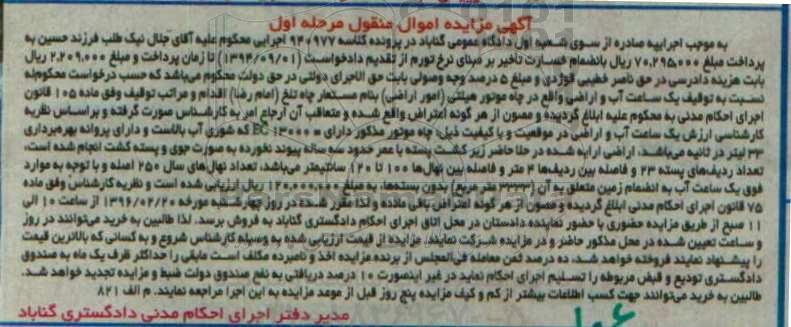 آگهی مزایده اموال منقول مرحله اول
به موجب اجراییه صادره از سوی شعبه اول دادگاه عمومی گناباد در پرونده کلاسه ۹۴۰۹۷۷ اجرایی محکوم علیه آقای جلال نیک طلب فرزند حسین به
پرداخت مبلغ ۷۰,۲۹۵,۰۰۰ ریال بانضمام خسارت تأخیر بر مبنای نرخ تورم از تقدیم دادخواست (۱۳۹۴/۰۹/۰۱) تا زمان پرداخت و مبلغ ۲,۲۰۹,۰۰۰ ریال
بابت هزینه دادرسی در حق ناصر خطیبی قوژدی و مبلغ ۵ درصد وجه وصولی بابت حق الاجرای دولتی در حق دولت محکوم می‌باشد که حسب درخواست محکوم‌له
نسبت به توقیف یک ساعت آب و اراضی واقع در چاه موتور هیئتی (امور اراضی) بنام مستعار چاه تلخ (امام رضا) اقدام و مراتب توقیف وفق ماده ۱۰۵ قانون
اجرای احکام مدنی به محکوم علیه ابلاغ گردیده و مصون از هر گونه اعتراض واقع شده و متعاقب آن ارجاع امر به کارشناس صورت گرفته و براساس نظریه
کارشناسی ارزش یک ساعت آب و اراضی در موقعیت و با کیفیت ذیل: چاه موتور مذکور دارای EC ۱۳۰۰۰ = که شوری آب بالاست و دارای پروانه بهره‌برداری
۳۳ لیتر در ثانیه می‌باشد. اراضی ارایه شده در حال حاضر زیر کشت پسته با عمر حدود سه ساله پیوند نخورده به صورت جوی و پسته کشت انجام شده است،
تعداد ردیف‌های پسته ۲۳ و فاصله بین ردیف‌ها ۴ متر و فاصله بین نهال‌ها ۱۰۰ تا ۱۲۰ سانتیمتر می‌باشد، تعداد نهال‌های سال ۲۵۰ اصله و با توجه به موارد
فوق یک ساعت آب به انضمام زمین متعلق به آن (۳۳۳۳ متر مربع) بدون پسته‌ها، به مبلغ ۱۲۰,۰۰۰,۰۰۰ ریال ارزیابی شده است و نظریه کارشناس وفق ماده
۷۵ قانون اجرای احکام مدنی ابلاغ گردیده و مصون از هر گونه اعتراض باقی مانده و لذا مقرر شده در روز چهارشنبه مورخه ۱۳۹۶/۰۲/۲۰ از ساعت ۱۰ الی
۱۱ صبح از طریق مزایده حضوری با حضور نماینده دادستان در محل اتاق اجرای احکام دادگستری گناباد به فروش برسد. لذا طالبین به خرید می‌توانند در روز
و ساعت تعیین شده در محل مذکور حاضر و در مزایده شرکت نمایند. مزایده از قیمت ارزیابی شده به وسیله کارشناس شروع و به کسانی که بالاترین قیمت
را پیشنهاد نمایند فروخته خواهد شد. ده درصد ثمن معامله فی‌المجلس از برنده مزایده اخذ و نامبرده مکلف است مابقی را حداکثر ظرف یک ماه به صندوق
دادگستری تودیع و قبض مربوطه را تسلیم اجرای احکام نماید در غیر اینصورت ۱۰ درصد دریافتی به نفع صندوق دولت ضبط و مزایده تجدید خواهد شد.
طالبین به خرید می‌توانند جهت کسب اطلاعات بیشتر از کم و کیف مزایده پنج روز قبل از موعد مزایده به این اجرا مراجعه نمایند. م الف ۸۲۱
مدیر دفتر اجرای احکام مدنی دادگستری گناباد